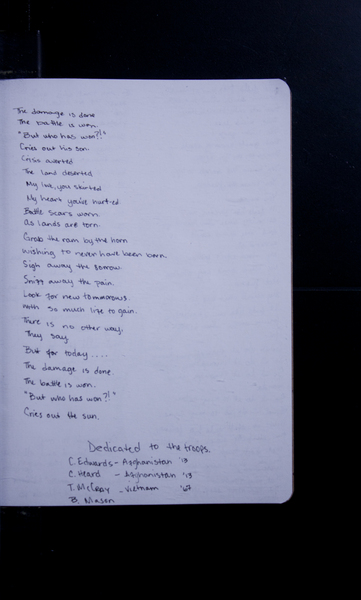 The damage is done
The battle is won.
"But who has won?!"
Cries out his son.
Crisis averted
The land deserted
My love, you skirted
My heart you've hurt-ed
Battle scars worn
As lands are torn.
Grab the ram by the horn
Wishing to never have been born.
Sigh away the sorrow.
Sniff away the pain.
Look for new tommorows.
With so much life to gain.
There is no other way.
They say.
But for today....
The damage is done.
The battle is won.
"But who has won?!"
Cries out the sun.
Dedicated to the troops.
C. Edwards - Afghanistan '13
C. Heard - Afghanistan '13
T. McCray - Vietnam '67
B. Mason